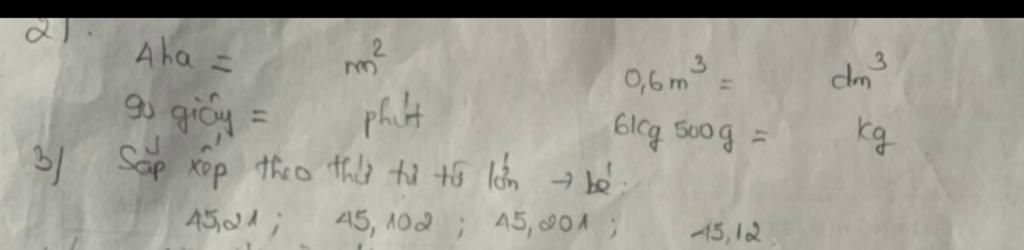 2).
4ha = m² 0,6m³ = dm³
90 giây = phút 6kg 500g = kg
3) Sắp xếp theo thứ tự từ lớn → bé:
45,21 ; 45,102 ; 45,201 ; 45,12